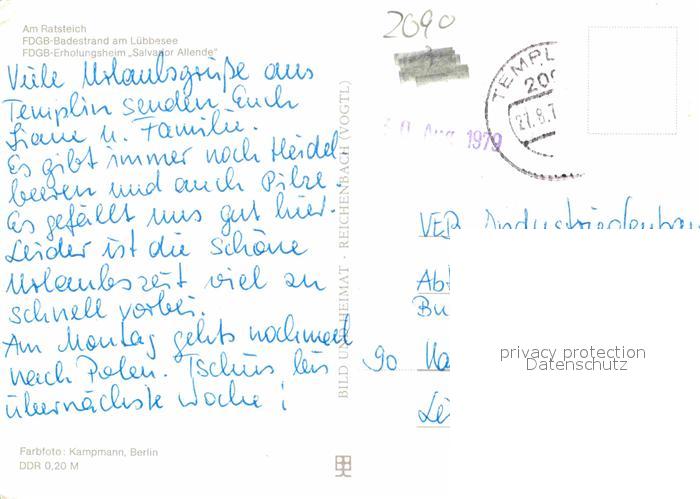 Am Ratsteich
FDGB-Badestrand am Lübbesee
FDGB-Erholungsheim „Salvador Allende"
Viele Urlaubsgrüße aus
Templin senden Euch
Liane u. Familie.
Es gibt immer noch Heidel-
beeren und auch Pilze.
Es gefällt uns gut hier.
Leider ist die schöne
Urlaubszeit viel zu
schnell vorbei.
Am Montag gehts nochmal
nach Polen. Tschüs bis
übernächste Woche!
Farbfoto: Kampmann, Berlin
DDR 0,20 M
BILD UND HEIMAT · REICHENBACH (VOGTL)
2090
TEMPL
209
27.8.7
0. Aug. 1979
VEB Industrie
Abt
Bu
90
privacy protection
Datenschutz